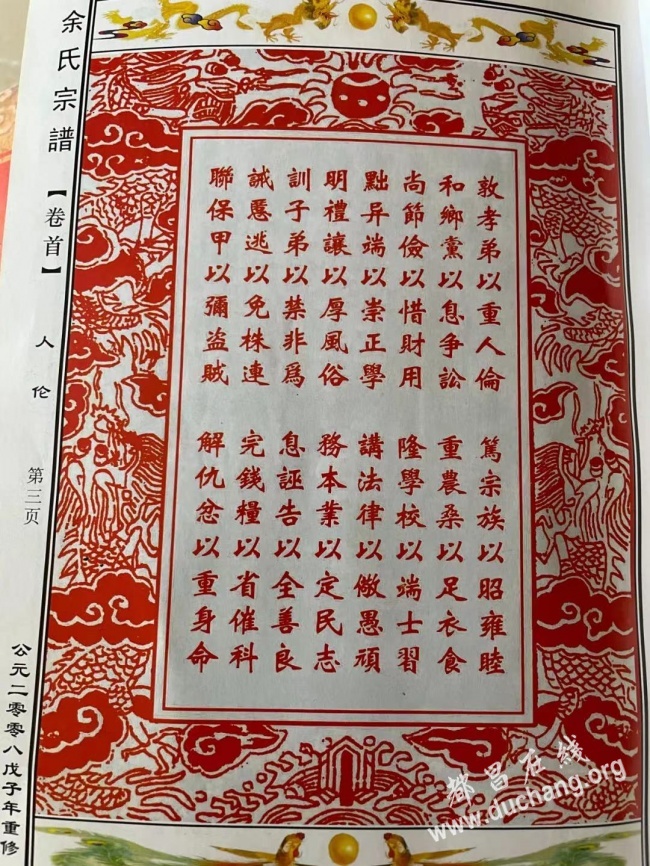 敦孝弟以重人倫　篤宗族以昭雍睦
和鄉黨以息争訟　重農桑以足衣食
尚節儉以惜財用　隆學校以端士習
黜异端以崇正學　講法律以儆愚頑
明禮讓以厚風俗　務本業以定民志
訓子弟以禁非爲　息誣告以全善良
誡慝逃以免株連　完錢糧以省催科
聯保甲以彌盗賊　解仇忿以重身命
余氏宗譜【卷首】 人伦 第三页 公元二零零八戊子年重修
都昌在线
www.duchang.org